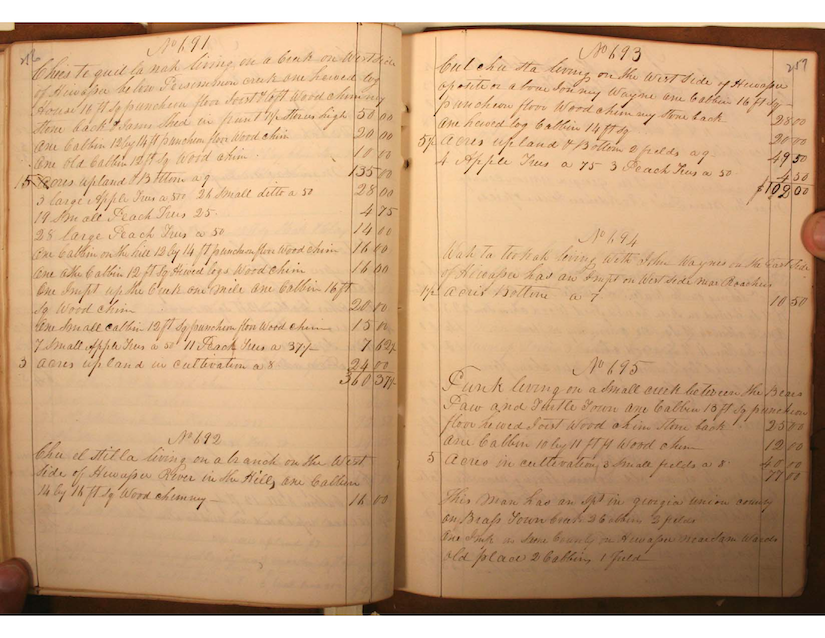 No 691
living on a Creek on West side
of Hiwassee below Persimmon creek one hewed log
House 16 ft Sq puncheon floor Joist & loft Wood chimny
Stone back & Jams Shed in part 1/2 Stories high 50 00
one Cabbin 12 by 14 ft puncheon floor Wood chim 20 00
one old Cabbin 12 ft Sq Wood chim 10 00
15 Acres upland & Bottom a 9 135 00
3 large Apple Trees a 500 26 Small ditto a 50 28 00
19 Small Peach Trees 25 4 75
28 large Peach Trees a 50 14 00
one Cabbin on the hill 12 by 14 ft puncheon floor Wood chim 16 00
one other Cabbin 12 ft Sq Hewed logs Wood chim 16 00
One Impt up the Creek one mile one Cabbin 16 ft
Sq Wood chim 20 00
One Small cabbin 12 ft Sq puncheon floor Wood chim 15 00
7 Small Apple Trees a 50 11 Peach Trees a 37 1/2 7 62 1/2
3 Acres upland in cultivation a 8 24 00
360 37 1/2
No 692
Chu el stil la living on a branch on the West
Side of Hiwassee River in the Hills one Cabbin
14 by 16 ft Sq Wood chimney 16 00
259
No 693
Cul chu sta living on the West Side of Hiwassee
oposite or above Jonny Wayne one Cabbin 16 ft Sq
puncheon floor Wood chimny Stone back 28 00
one hewed log Cabbin 14 ft Sq 20 00
5 1/2 Acres upland & Bottom 2 fields a 9 49 50
4 Apple Trees a 75 3 Peach Trees a 50 4 50
$102 00
No 694
living With John Waynes on the East Side
of Hiwassee has an Impt on West Side near Roachies
1 1/2 Acres Bottom a 7 10 50
No 695
Punk living on a Small creek between the Bear
Paw and Turtle Town one Cabbin 15 ft Sq puncheon
floor hewed Joist Wood chim Stone back 25 00
one Cabbin 10 by 11 ft Wood chim 12 00
5 Acres in cultivation 3 Small fields a 8 40 00
77 00
This man has an Ipt in georgia union county
on Brass Town Creek 2 Cabbins 2 fields
One Imt in Same County on Hiwassee near Sam Wards
old place 2 Cabbins 1 field